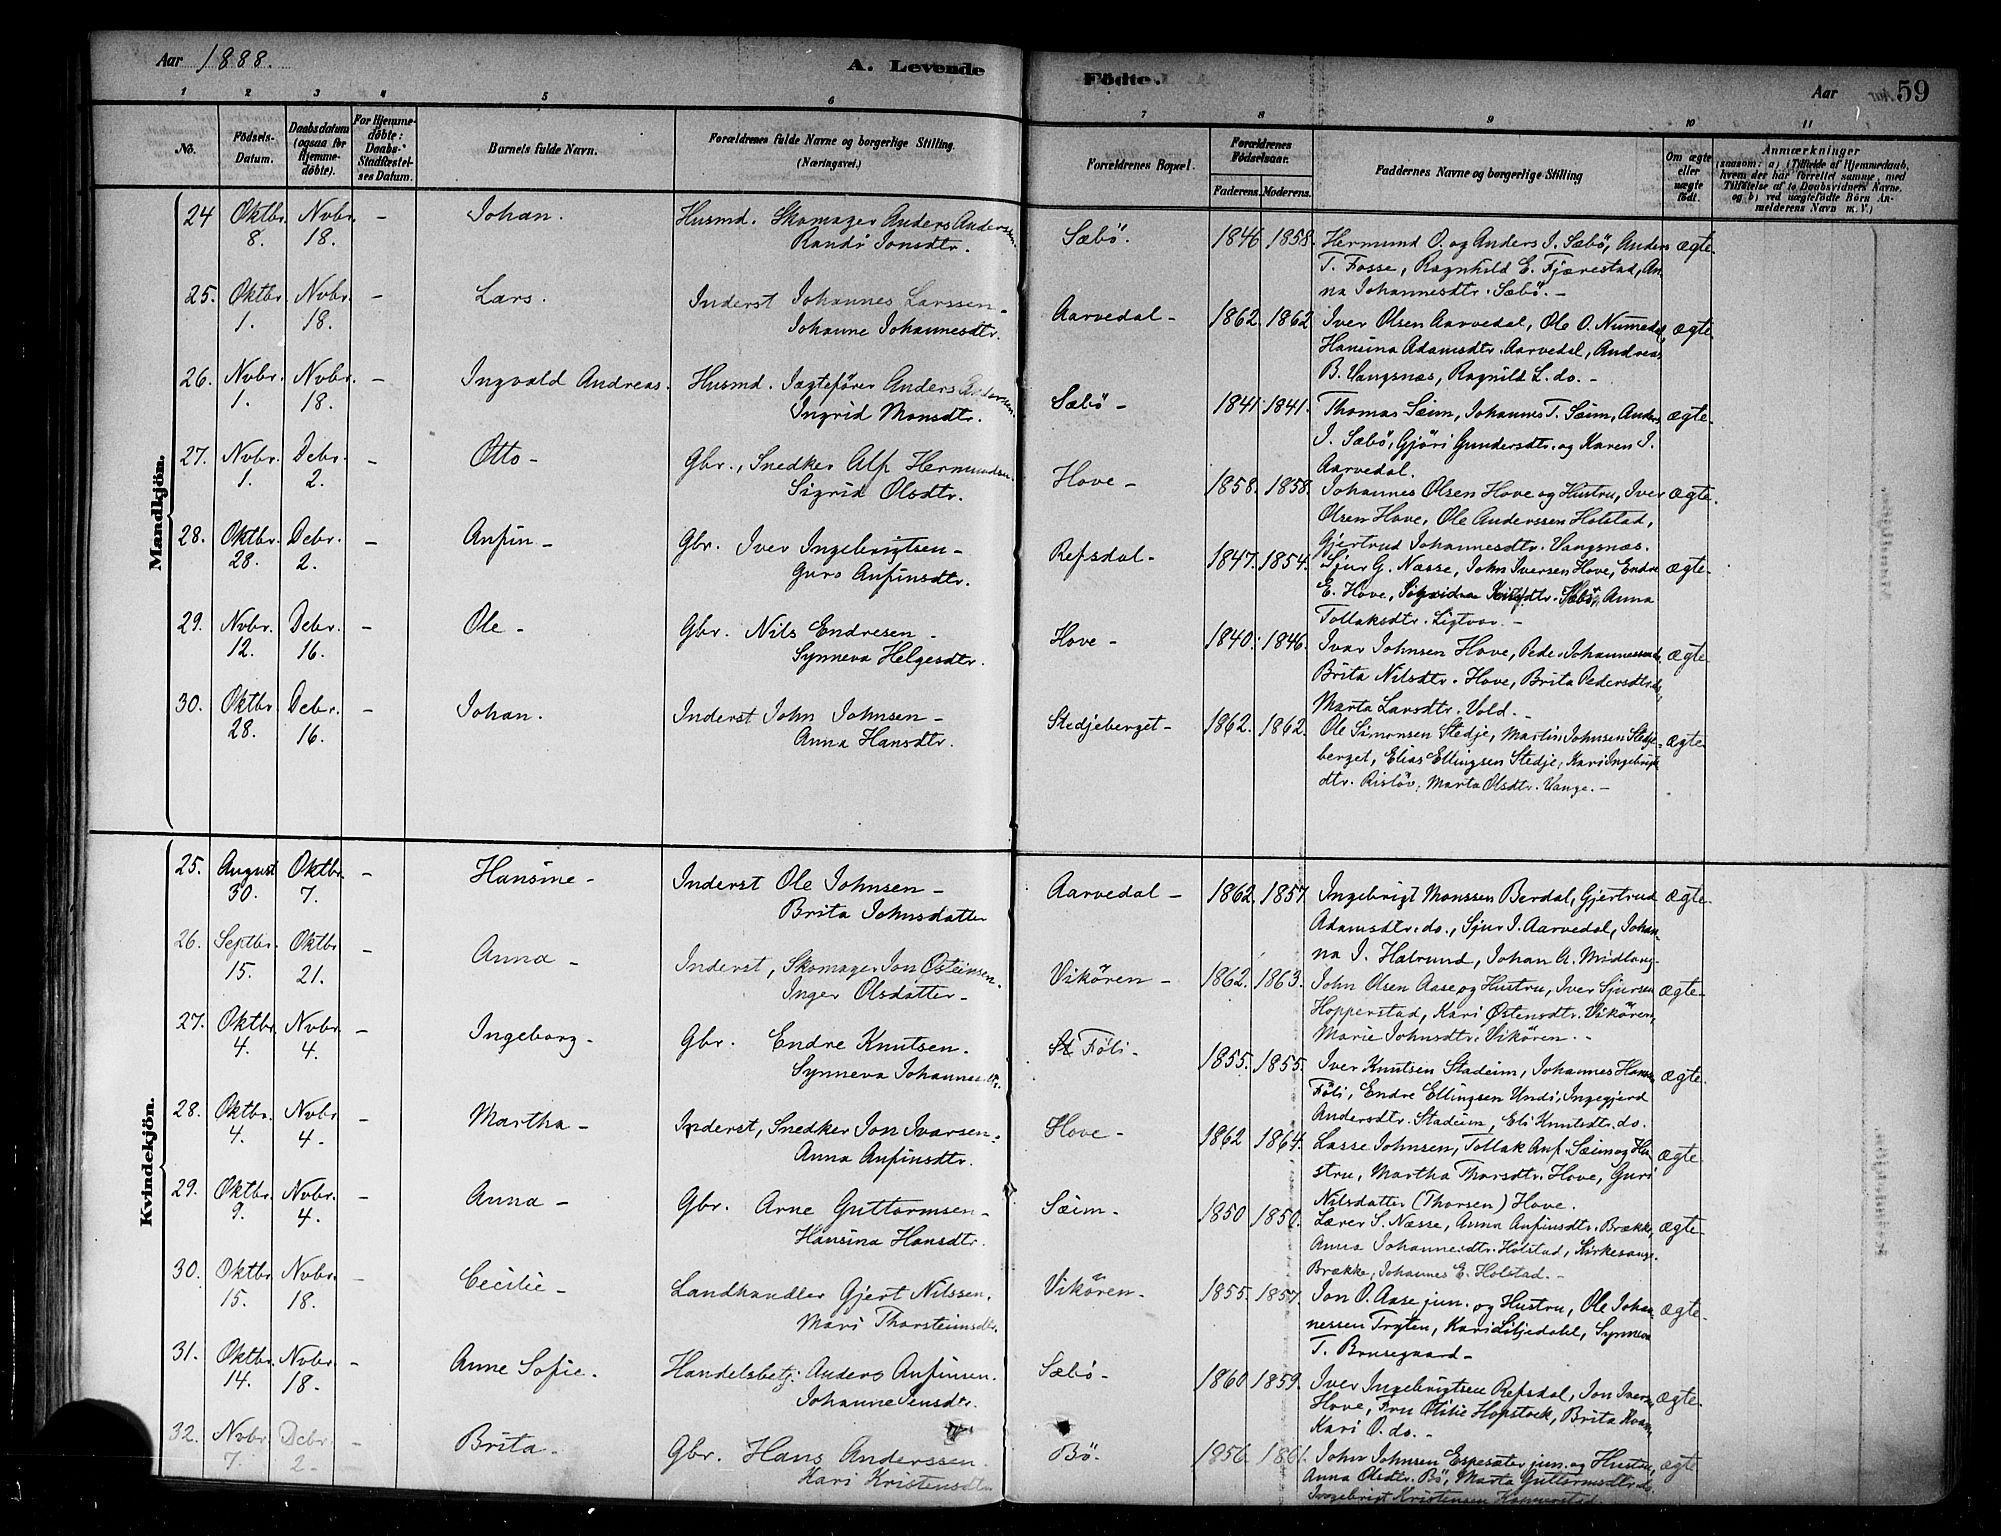 Aar 1888. A. Levende Fødte. Aar 59
1 2 3 4 5 6 7 8 9 10 11
No. Fødsels-Datum. Daabsdatum (ogsaa for Hjemmedøbte). For Hjemmedøbte: Daabs-Stadfæstelses Datum. Barnets fulde Navn. Forældrenes fulde Navne og borgerlige Stilling. (Næringsvei.) Forældrenes Bopæl. Forældrenes Fødselsaar. Faderens. Moderens. Faddernes Navne og borgerlige Stilling Om ægte eller uægte født. Anmærkninger (saasom: a) i Tilfælde af Hjemmedaab, hvem der har forrettet samme, med Tilføielse af to Daabsvidners Navne, og b) ved uægtefødte Børn Anmelderens Navn m. V.)
Mandkjön.
24 Oktbr. 8. Novbr. 18. - Johan. Husmd. Skomager Anders Anderssen. Sæbö. 1846 1858. Hermund O. og Anders I. Sæbö, Anders ægte.
Randi Jonsdtr. T. Fosse, Ragnhild E. Fjærestad, An-
na Johannesdtr. Sæbö. -
25. Oktbr. 1. Nvbr. 18. - Lars. Inderst Johannes Larssen - Aarvedal - 1862. 1862 Iver Olsen Aarvedal, Ole O. Numedal, ægte.
Johanne Johannesdtr. Hansina Adamsdtr. Aarvedal, Andreas
B. Vangsnæs, Ragnild L. do. -
26. Nvbr. 1. Nvbr. 18. - Ingvald Andreas. Husmd. Jagtefører Anders Anderssen. Sæbö - 1841 1841. Thomas Seim, Johannes T. Seim, Anders ægte.
Ingrid Monsdtr. I. Sæbö, Gjöri Gundersdtr. og Karen I.
Aarvedal.
27. Nvbr. 1. Debr. 2. - Otto - Gbr., Snedker Alf Hermundsen. Hove - 1858. 1858. Johannes Olsen Hove og Hustru, Iver ægte.
Sigrid Olsdtr. Olsen Hove, Ole Anderssen Holstad,
Gjertrud Johannesdtr. Vangsnæs.
28. Oktbr. 28. Debr. 2. - Anfin - Gbr. Iver Ingebrigtsen - Refsdal - 1847. 1854. Sjur G. Næsse, John Iversen Hove, Endre ægte.
Guro Anfinsdtr. E. Hove, Sæbö, Anna
Tollaksdtr. Ligtvor. -
29. Nvbr. 12. Debr. 16. - Ole - Gbr. Nils Endresen - Hove - 1840. 1846. Ivar Johnsen Hove, Peder Johannessen do, ægte
Synneva Helgesdtr. Brita Nilsdtr. Hove, Brita Pedersdtr. do,
Marta Larsdtr. Vold. -
30. Oktbr. 28. Debr. 16. - Johan. Inderst John Johnsen - Stedjeberget - 1862. 1862. Ole Simonsen Stedje, Martin Johnsen Stedje- ægte
Anna Hansdtr. berget, Elias Ellingsen Stedje, Kari Ingebrigts
dtr. Risløv, Marta Olsdtr. Vange. -
Kvindekjön.
25. August 30. Oktbr. 7. - Hansine - Inderst Ole Johnsen - Aarvedal - 1862. 1857 Ingebrigt Monssen Berdal, Gjertrud ægte.
Brita Johnsdatter Adamsdtr. do., Sjur I. Aarvedal, Johan-
na I. Halrund, Johan A. Midlang.
26. Septbr. 15. Oktbr 21. - Anna - Inderst, Skomager Jon Osteinsen. Vikören - 1862. 1863. John Olsen Aase og Hustru, Iver Sjursen ægte
Inger Olsdatter - Hopperstad, Kari Østensdtr. Vikören,
Marie Johnsdtr. Vikören. -
27. Oktbr. 4. Nvbr. 4. - Ingeborg - Gbr. Endre Knutsen. Föli - 1855. 1855. Iver Knutsen Stadeim, Johannes Hansen ægte
Synneva Johannesdtr. Föli, Endre Ellingsen Undi, Ingegjerd
Andersdtr. Stadeim, Eli Knutsdtr. do.
28. Oktbr. 4. Nvbr. 4. - Martha - Inderst, Snedker Jon Ivarsen - Hove - 1862 1864. Lasse Johnsen, Tollak Anf. Seim og Hu- ægte
Anna Anfinsdtr. stru, Martha Thorsdtr. Hove, Guri
Nilsdatter (Thorsen) Hove.
29. Oktbr. 9. Nvbr. 4. - Anna - Gbr. Arne Guttormsen - Seim - 1850 1850. Lærer S. Næsse, Anna Anfinsdtr. Brække, ægte
Hansina Hansdtr. Anna Johannesdtr. Holstad, Kirkesanger
Brække, Johannes E. Holstad. -
30. Oktbr. 15. Nvbr. 18. - Cecilie - Landhandler Gjert Nilssen. Vikören - 1855. 1857. Jon O. Aase jun. og Hustru, Ole Johan- ægte
Mari Thorsteinsdtr. nessen Tryten, Kari Liljedahl, Synneva
T. Brusegaard -
31. Oktbr. 14. Nvbr. 18. - Anne Sofie. Handelsbetj. Anders Anfinsen. Sæbö - 1860 1859. Iver Ingebrigtsen Refsdal, Jon Ivers. ægte.
Johanne Jensdtr. Hove, Fru Otilie Hopstock, Brita
Kari O. do. -
32. Nvbr. 7. Debr. 2 - Brita - Gbr. Hans Anderssen. Bö. 1856. 1861. John Johnsen jun. og Hustru, ægte
Kari Kristensdtr. Anna Olsdtr. Bö, Marta Guttormsdtr. do.
Ingebrigt Kristensen